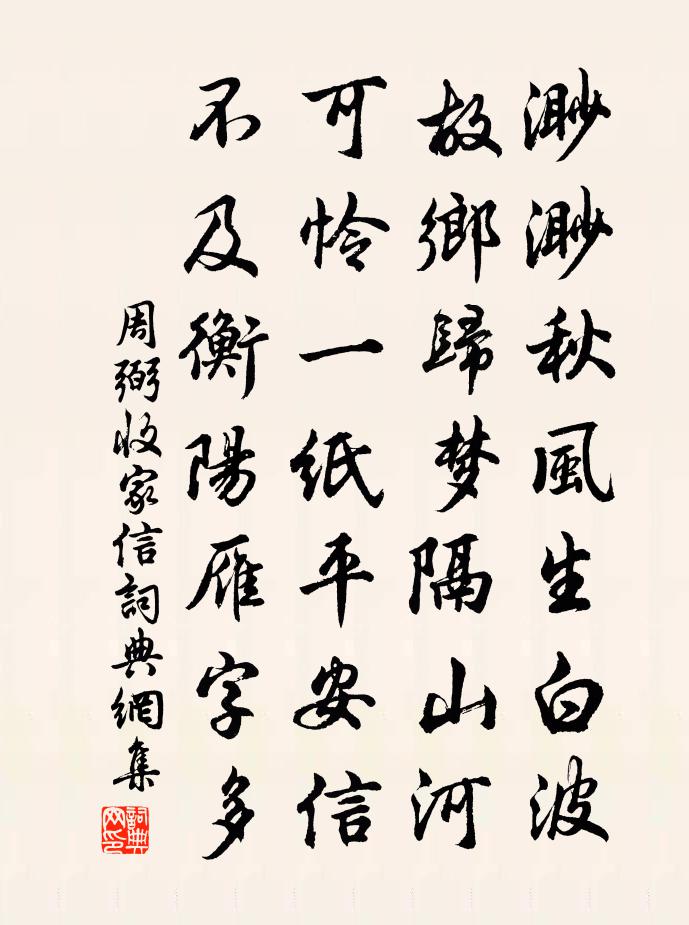 渺渺秋風生白波
故鄉歸梦隔山河
可怜一紙平安信
不及衡陽雁字多
周弼收家信詞典網集
詞典網印